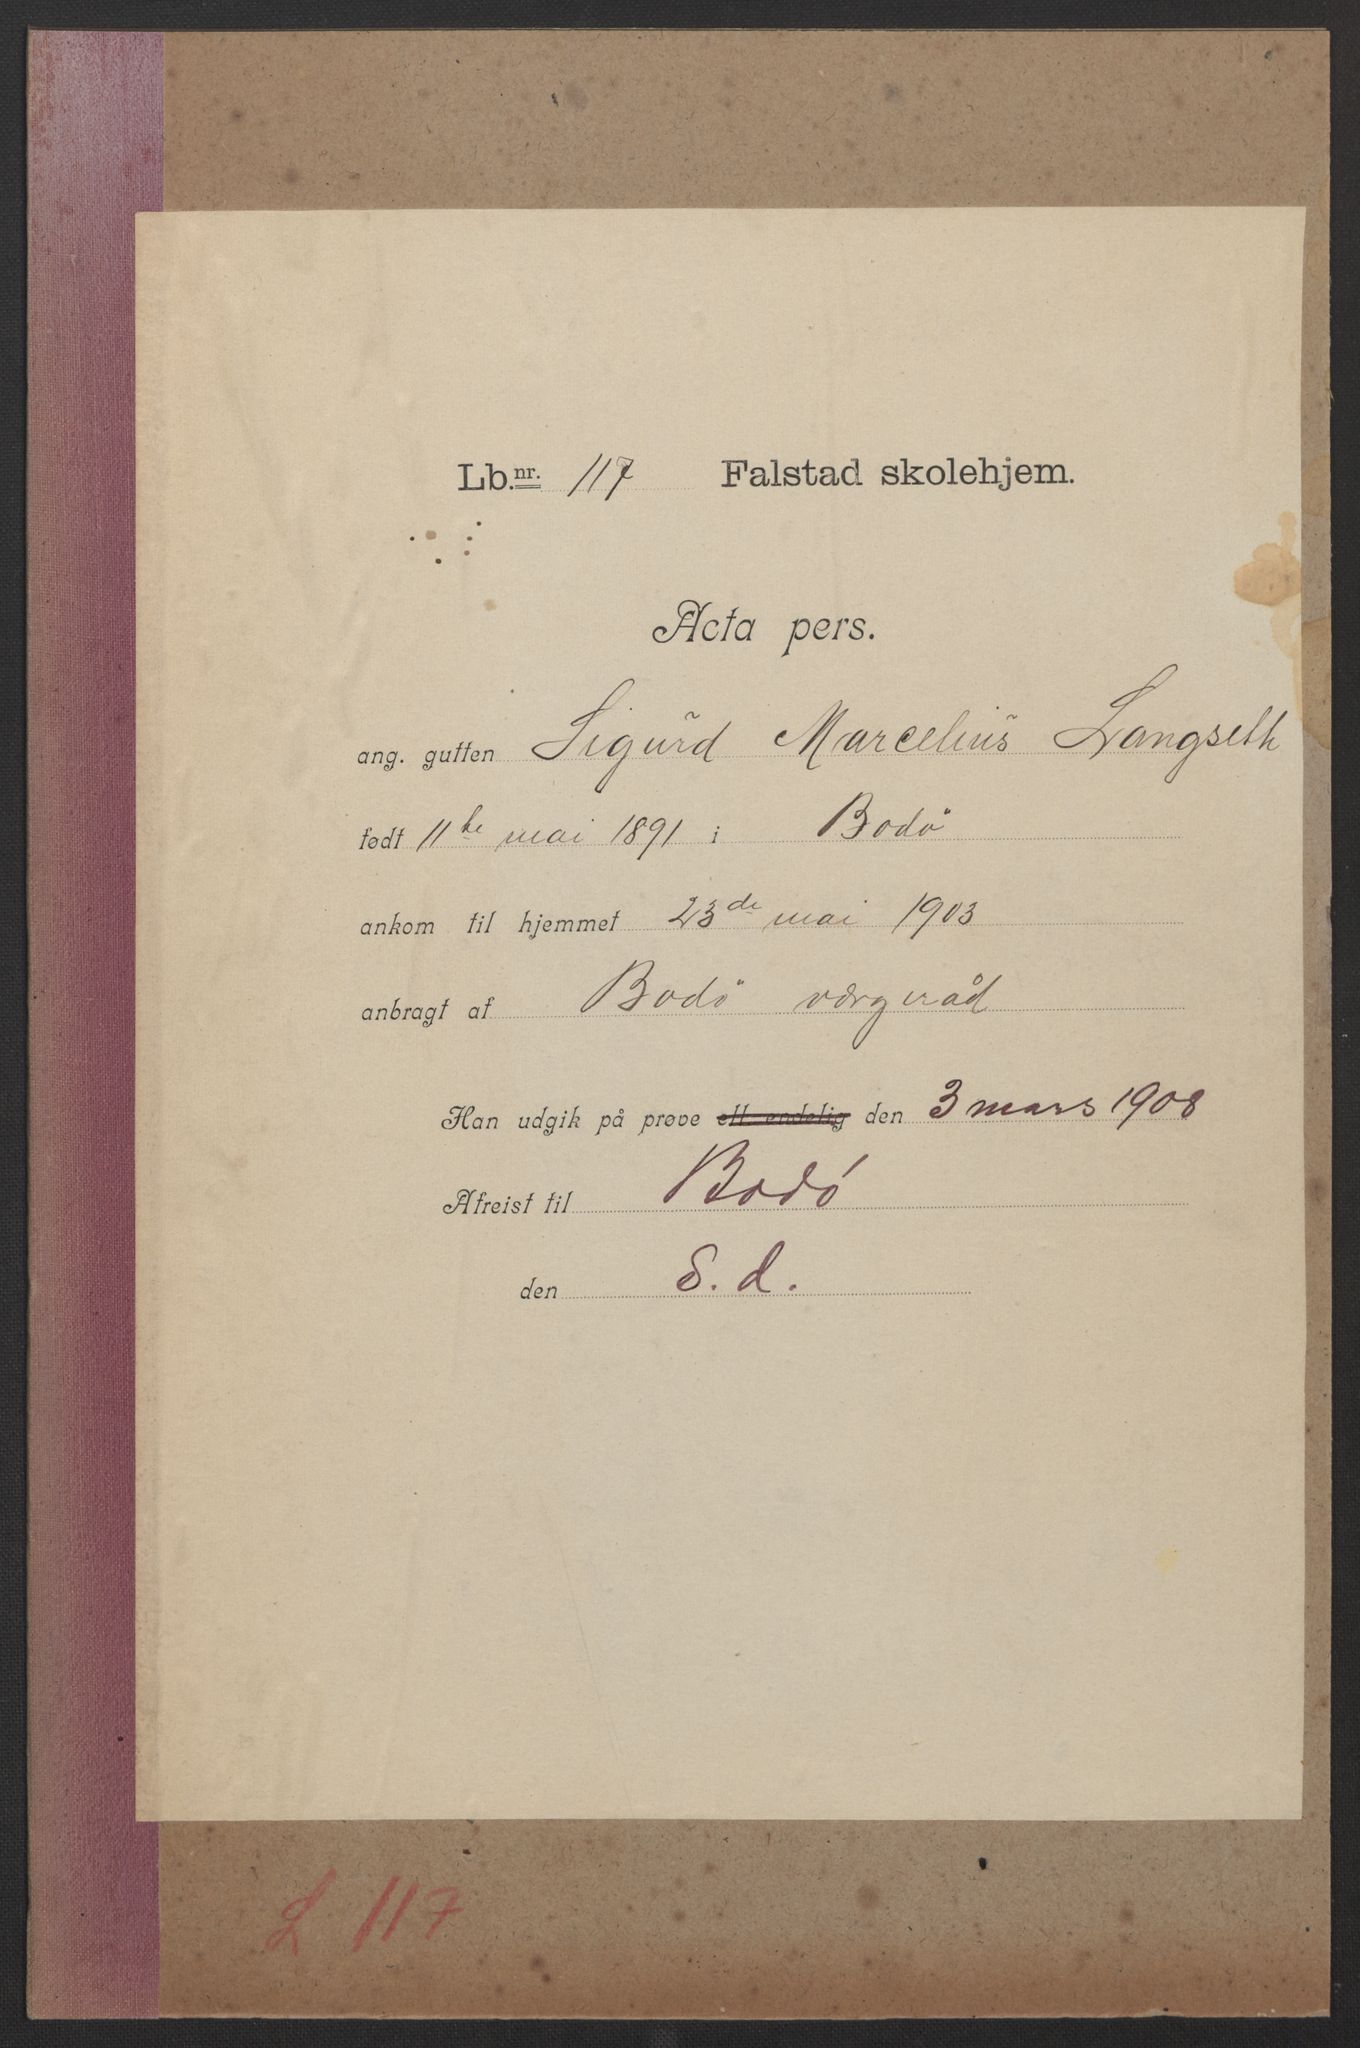 Lb.nr. 117 Falstad skolehjem.
Acta pers.
ang. gutten Sigurd Marcelius Langseth
født 11te mai 1891 i Bodö
ankom til hjemmet 23de mai 1903
anbragt af Bodö værgeråd
Han udgik på prøve ell. endelig den 3 mars 1908
Afreist til Bodó
den S. d.
L 117